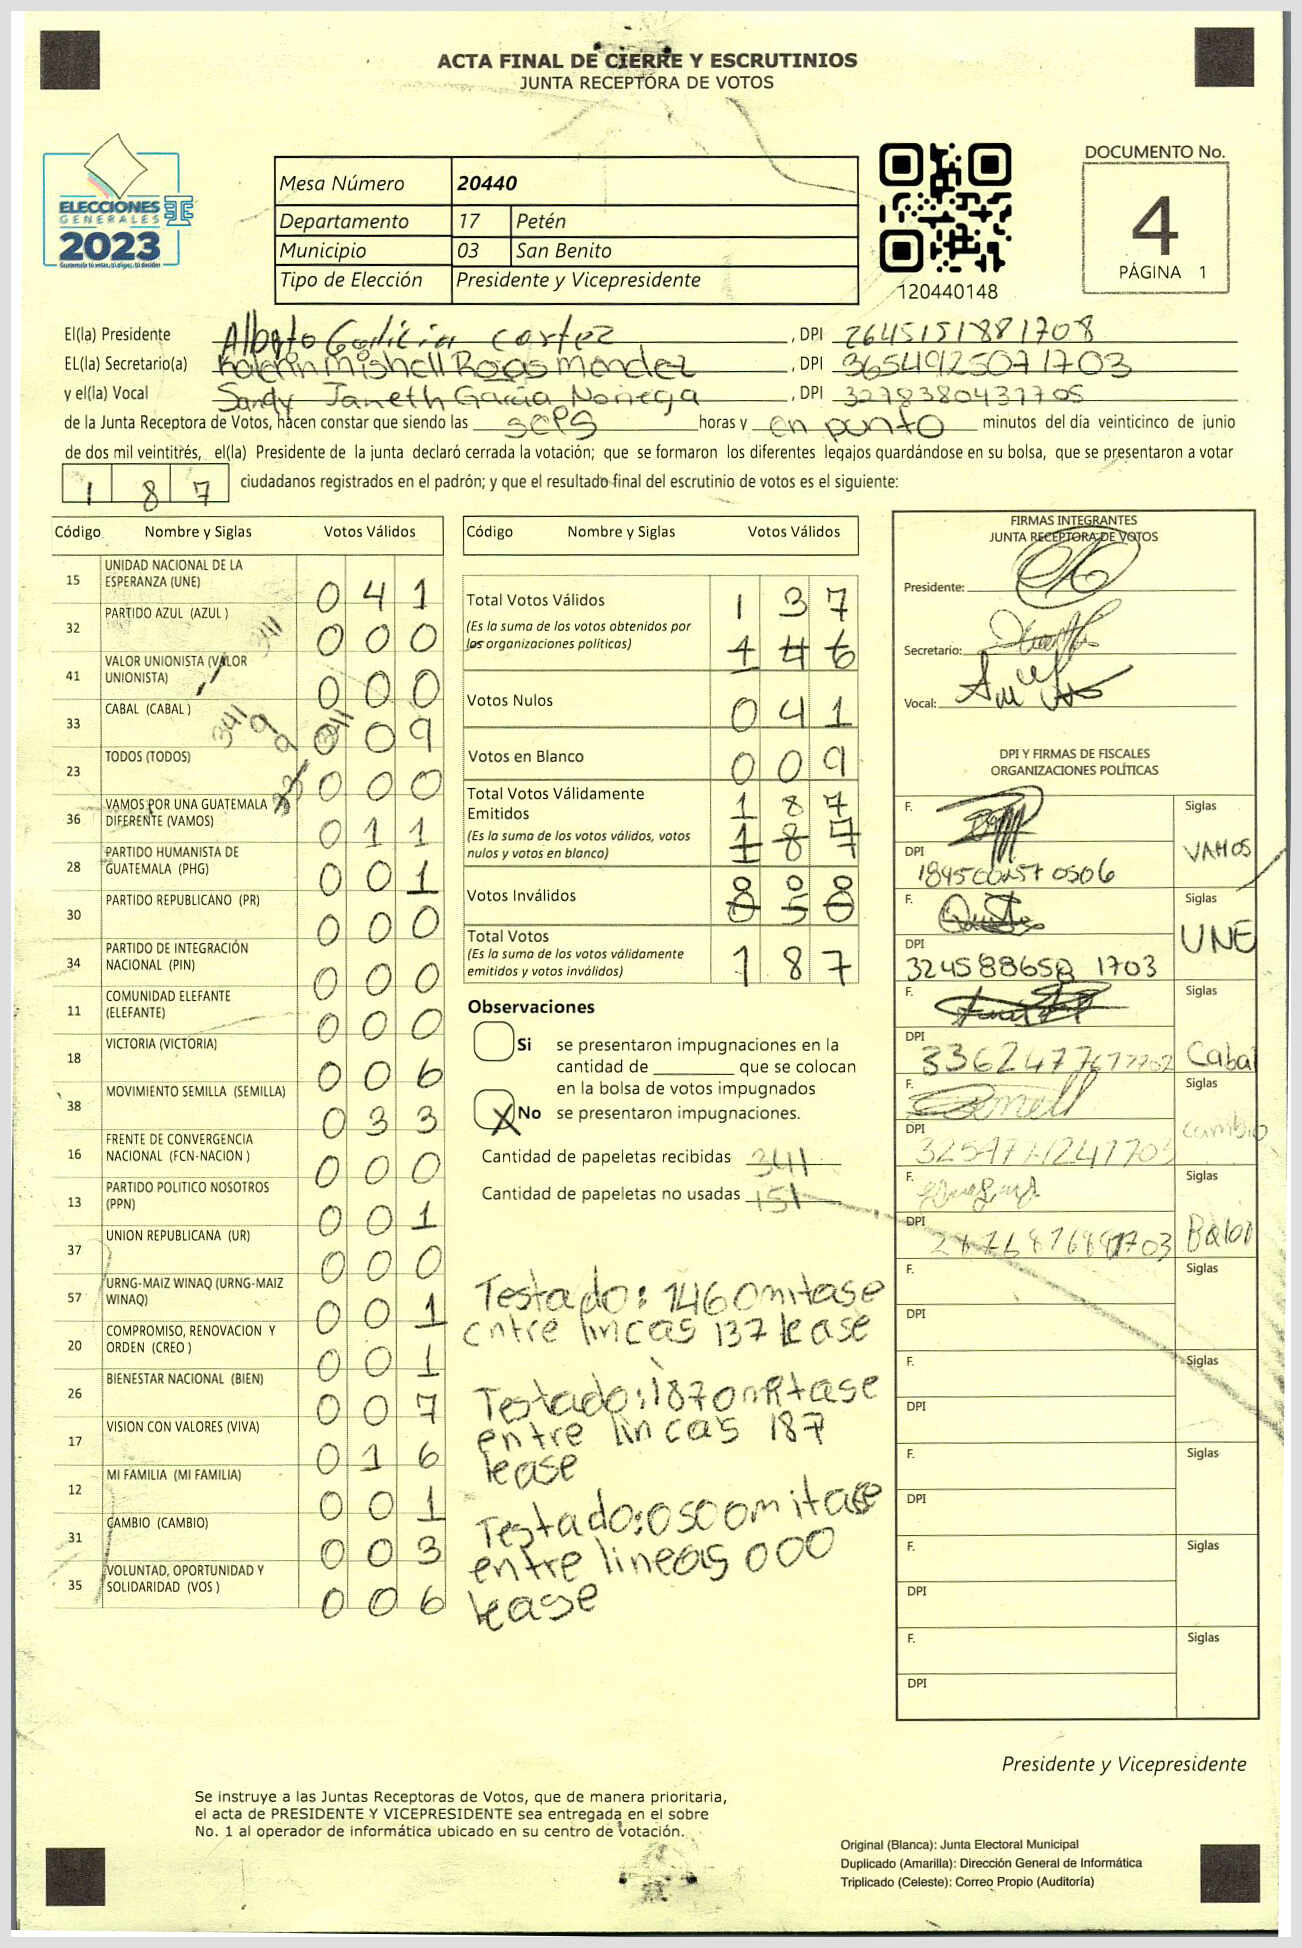 ACTA FINAL DE CIERRE Y ESCRUTINIOS
JUNTA RECEPTORA DE VOTOS
ELECCIONES
GENERALES
2023
Mesa Número 20440
Departamento 17 Petén
Municipio 03 San Benito
Tipo de Elección Presidente y Vicepresidente
120440148
DOCUMENTO No.
4
PÁGINA 1
El(la) Presidente Cortez , DPI 2645151881708
EL(la) Secretario(a) Mishell Rosas Mendez , DPI 3654925071703
y el(la) Vocal Sandy Janeth Garcia Noriega , DPI 3278380437705
de la Junta Receptora de Votos, hacen constar que siendo las seis horas y en punto minutos del día veinticinco de junio
de dos mil veintitrés, el(la) Presidente de la junta declaró cerrada la votación; que se formaron los diferentes legajos guardándose en su bolsa, que se presentaron a votar
1 8 7 ciudadanos registrados en el padrón; y que el resultado final del escrutinio de votos es el siguiente:
Código Nombre y Siglas Votos Válidos
15 UNIDAD NACIONAL DE LA ESPERANZA (UNE) 0 4 1
32 PARTIDO AZUL (AZUL ) 0 0 0
41 VALOR UNIONISTA (VALOR UNIONISTA) 0 0 0
33 CABAL (CABAL ) 0 0 9
23 TODOS (TODOS) 0 0 0
36 VAMOS POR UNA GUATEMALA DIFERENTE (VAMOS) 0 1 1
28 PARTIDO HUMANISTA DE GUATEMALA (PHG) 0 0 1
30 PARTIDO REPUBLICANO (PR) 0 0 0
34 PARTIDO DE INTEGRACIÓN NACIONAL (PIN) 0 0 0
11 COMUNIDAD ELEFANTE (ELEFANTE) 0 0 0
18 VICTORIA (VICTORIA) 0 0 6
38 MOVIMIENTO SEMILLA (SEMILLA) 0 3 3
16 FRENTE DE CONVERGENCIA NACIONAL (FCN-NACION ) 0 0 0
13 PARTIDO POLITICO NOSOTROS (PPN) 0 0 1
37 UNION REPUBLICANA (UR) 0 0 0
57 URNG-MAIZ WINAQ (URNG-MAIZ WINAQ) 0 0 1
20 COMPROMISO, RENOVACION Y ORDEN (CREO ) 0 0 1
26 BIENESTAR NACIONAL (BIEN) 0 0 7
17 VISION CON VALORES (VIVA) 0 1 6
12 MI FAMILIA (MI FAMILIA) 0 0 1
31 CAMBIO (CAMBIO) 0 0 3
35 VOLUNTAD, OPORTUNIDAD Y SOLIDARIDAD (VOS ) 0 0 6
Código Nombre y Siglas Votos Válidos
Total Votos Válidos 1 3 7
(Es la suma de los votos obtenidos por
los organizaciones políticas) 1 4 6
Votos Nulos 0 4 1
Votos en Blanco 0 0 9
Total Votos Válidamente
Emitidos 1 8 7
(Es la suma de los votos válidos, votos
nulos y votos en blanco) 1 8 7
Votos Inválidos 0 0 0
0 5 0
Total Votos
(Es la suma de los votos válidamente
emitidos y votos inválidos) 1 8 7
Observaciones
Si se presentaron impugnaciones en la
cantidad de ________ que se colocan
en la bolsa de votos impugnados
X No se presentaron impugnaciones.
Cantidad de papeletas recibidas 341
Cantidad de papeletas no usadas 151
Testado: 146 Omitase
entre lineas 137 lease
Testado: 187 omitase
entre lineas 187
lease
Testado: 050 omitase
entre lineas 000
lease
FIRMAS INTEGRANTES
JUNTA RECEPTORA DE VOTOS
Presidente:
Secretario:
Vocal:
DPI Y FIRMAS DE FISCALES
ORGANIZACIONES POLÍTICAS
F. Siglas
DPI VAMOS
F. Siglas
DPI UNE
F. Siglas
DPI Cabal
F. Siglas
DPI cambio
F. Siglas
DPI
F. Siglas
DPI
F. Siglas
DPI
F. Siglas
DPI
F. Siglas
DPI
F. Siglas
DPI
Presidente y Vicepresidente
Se instruye a las Juntas Receptoras de Votos, que de manera prioritaria,
el acta de PRESIDENTE Y VICEPRESIDENTE sea entregada en el sobre
No. 1 al operador de informática ubicado en su centro de votación.
Original (Blanca): Junta Electoral Municipal
Duplicado (Amarilla): Dirección General de Informática
Triplicado (Celeste): Correo Propio (Auditoría)